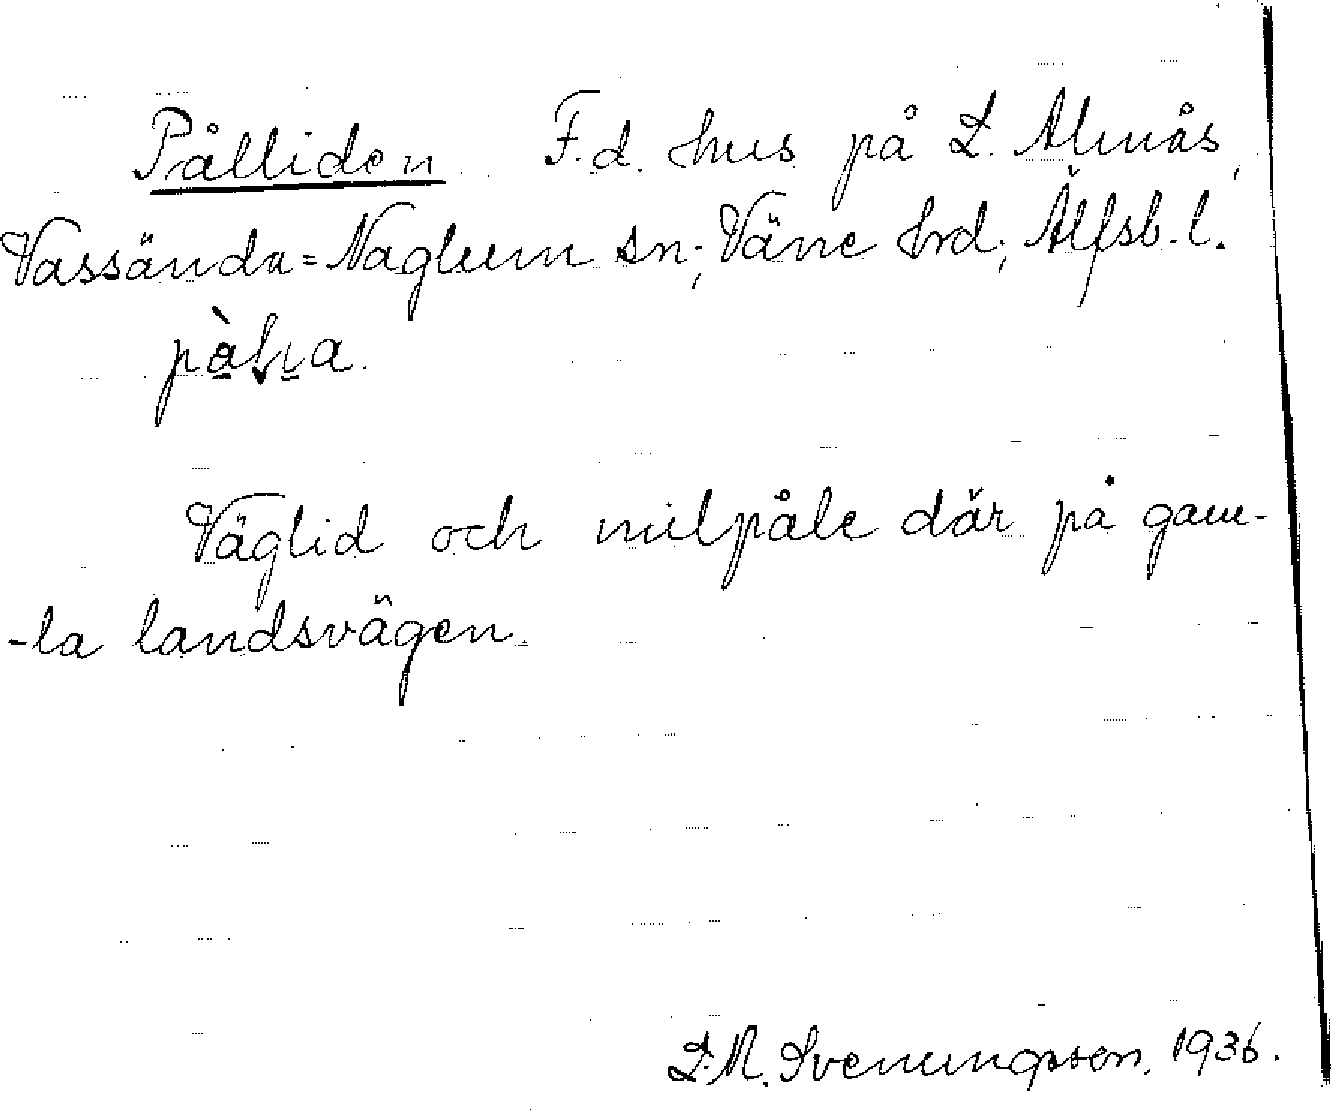 Pålliden F.d. hus på L. Almås,
Vassända=Naglum sn; Väne hrd; Älfsb. l.
Väglid och milpåle där på gam-
-la landsvägen.
L.M. Svenungsson. 1936.